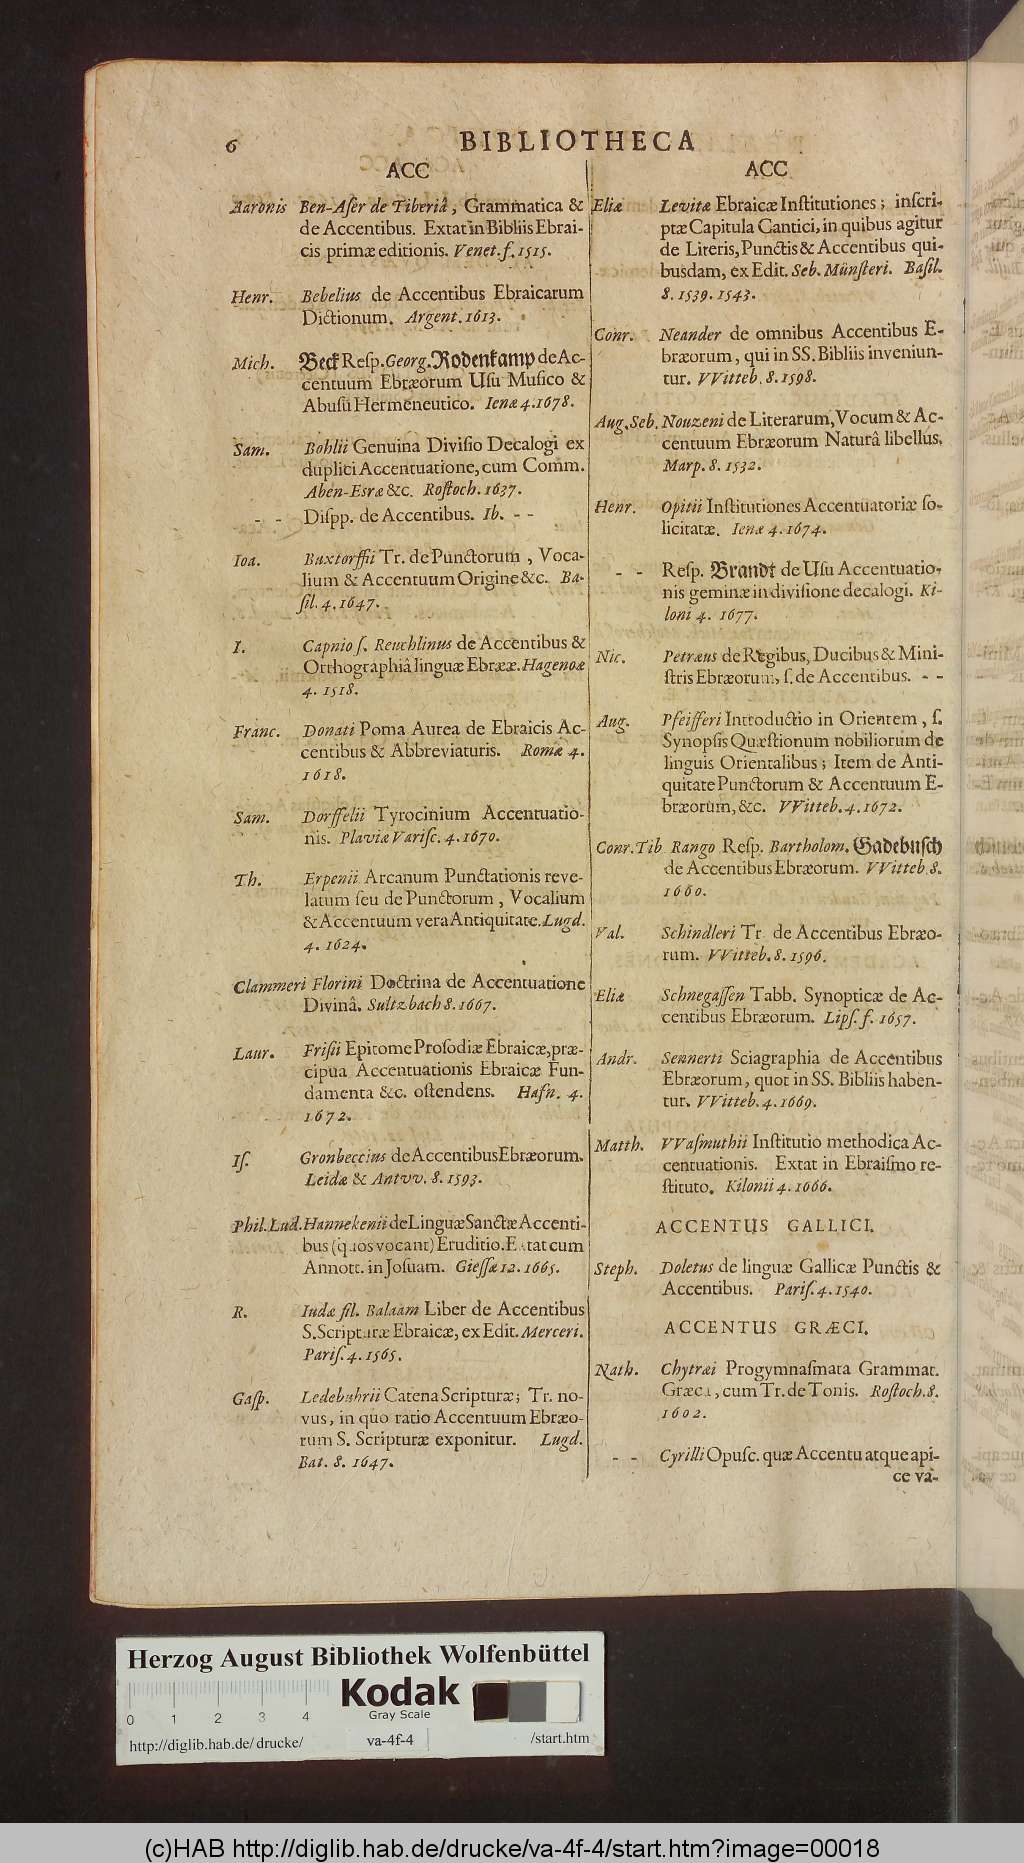 6 BIBLIOTHECA
ACC
Aaronis Ben-Aſer de Tiberiâ, Grammatica &
de Accentibus. Extat in Bibliis Ebrai-
cis primæ editionis. Venet. f. 1515.
Henr. Bebelius de Accentibus Ebraicarum
Dictionum. Argent. 1613.
Mich. Beck Reſp. Georg. Rodenkamp de Ac-
centuum Ebræorum Uſu Muſico &
Abuſu Hermeneutico. Ienæ 4. 1678.
Sam. Bohlii Genuina Diviſio Decalogi ex
duplici Accentuatione, cum Comm.
Aben-Esræ &c. Roſtoch. 1637.
- - Diſpp. de Accentibus. Ib. - -
Ioa. Buxtorffii Tr. de Punctorum, Voca-
lium & Accentuum Origine &c. Ba-
ſil. 4. 1647.
I. Capnio ſ. Reuchlinus de Accentibus &
Orthographiâ linguæ Ebrææ. Hagenoæ
4. 1518.
Franc. Donati Poma Aurea de Ebraicis Ac-
centibus & Abbreviaturis. Romæ 4.
1618.
Sam. Dorffelii Tyrocinium Accentuatio-
nis. Plaviæ Variſc. 4. 1670.
Th. Erpenii Arcanum Punctationis reve-
latum ſeu de Punctorum, Vocalium
& Accentuum vera Antiquitate. Lugd.
4. 1624.
Clammeri Florini Doctrina de Accentuatione
Divinâ. Sultzbach 8. 1667.
Laur. Friſii Epitome Proſodiæ Ebraicæ, præ-
cipua Accentuationis Ebraicæ Fun-
damenta &c. oſtendens. Hafn. 4.
1672.
Iſ. Gronbeccius de Accentibus Ebræorum.
Leidæ & Antvv. 8. 1593.
Phil. Lud. Hannekenii de Linguæ Sanctæ Accenti-
bus (quos vocant) Eruditio. Extat cum
Annott. in Joſuam. Gieſſæ 12. 1665.
R. Iudæ fil. Balaam Liber de Accentibus
S. Scripturæ Ebraicæ, ex Edit. Merceri.
Pariſ. 4. 1565.
Gaſp. Ledebuhrii Catena Scripturæ; Tr. no-
vus, in quo ratio Accentuum Ebræo-
rum S. Scripturæ exponitur. Lugd.
Bat. 8. 1647.
ACC
Eliæ Levitæ Ebraicæ Inſtitutiones; inſcri-
ptæ Capitula Cantici, in quibus agitur
de Literis, Punctis & Accentibus qui-
busdam, ex Edit. Seb. Münſteri. Baſil.
8. 1539. 1543.
Conr. Neander de omnibus Accentibus E-
bræorum, qui in SS. Bibliis inveniun-
tur. VVitteb. 8. 1598.
Aug. Seb. Nouzeni de Literarum, Vocum & Ac-
centuum Ebræorum Naturâ libellus.
Marp. 8. 1532.
Henr. Opitii Inſtitutiones Accentuatoriæ ſo-
licitatæ. Ienæ 4. 1674.
- - Reſp. Brandt de Uſu Accentuatio-
nis geminæ in diviſione decalogi. Ki-
loni 4. 1677.
Nic. Petræus de Regibus, Ducibus & Mini-
ſtris Ebræorum, ſ. de Accentibus. - -
Aug. Pfeifferi Introductio in Orientem, ſ.
Synopſis Quæſtionum nobiliorum de
linguis Orientalibus; Item de Anti-
quitate Punctorum & Accentuum E-
bræorum, &c. VVitteb. 4. 1672.
Conr. Tib. Rango Reſp. Bartholom. Gadebuſch
de Accentibus Ebræorum. VVitteb. 8.
1660.
Val. Schindleri Tr. de Accentibus Ebræo-
rum. VVitteb. 8. 1596.
Eliæ Schnegaſſen Tabb. Synopticæ de Ac-
centibus Ebræorum. Lipſ. f. 1657.
Andr. Sennerti Sciagraphia de Accentibus
Ebræorum, quot in SS. Bibliis haben-
tur. VVitteb. 4. 1669.
Matth. VVaſmuthii Inſtitutio methodica Ac-
centuationis. Extat in Ebraiſmo re-
ſtituto. Kilonii 4. 1666.
ACCENTUS GALLICI.
Steph. Doletus de linguæ Gallicæ Punctis &
Accentibus. Pariſ. 4. 1540.
ACCENTUS GRÆCI.
Nath. Chytræi Progymnaſmata Grammat.
Græca, cum Tr. de Tonis. Roſtoch. 8.
1602.
- - Cyrilli Opuſc. quæ Accentu atque api-
ce va-
Herzog August Bibliothek Wolfenbüttel
Kodak
Gray Scale
0 1 2 3 4
http://diglib.hab.de/ drucke/ va-4f-4 /start.htm
(c)HAB http://diglib.hab.de/drucke/va-4f-4/start.htm?image=00018